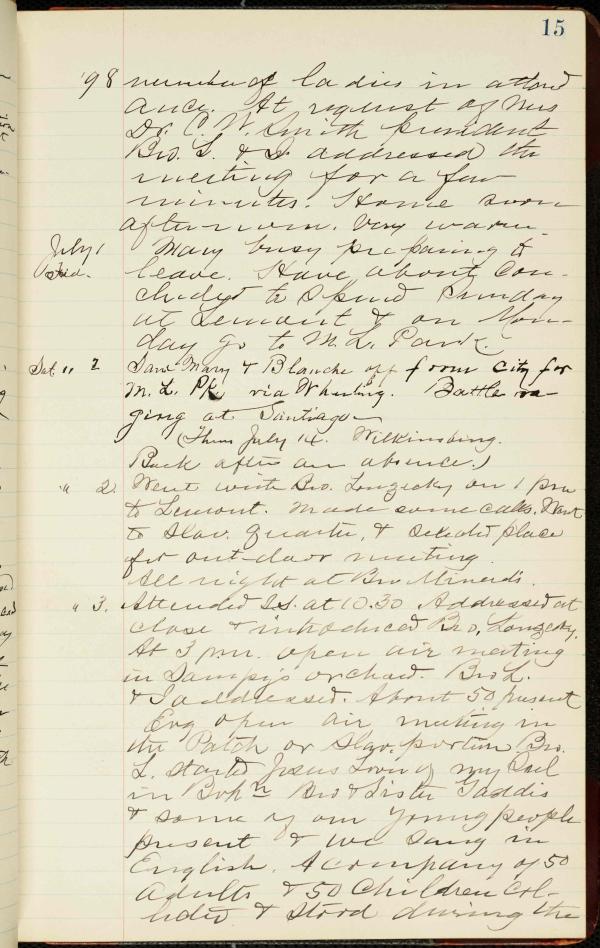 15
'98 number of ladies in attend
ance. At request of Mrs
Dr. C. W. Smith president
Bro. L. & I addressed the
meeting for a few
minutes. Home soon
afternoon. Very warm.
July 1 Mary busy preparing to
Frid. leave. Have about con-
cluded to spend Sunday
at Lemont & on Mon-
day go to M. L. Park
Sat. " 2 Saw Mary & Blanche off from city for
M. L. Pk via Wheeling. Battle ra
ging at Santiago
(Thurs July 14. Wilkinsburg.
Back after an absence.)
" 2. Went with Bro. on 1 pm
to Lemont. Made some calls. Went
to Slav. quarter, & selected place
for out-door meeting.
All night at Bro Minerd's.
" 3. Attended S.S. at 10.30. Addressed at
close & introduced Bro.
At 3 pm. open air meeting
in orchard. Bro L.
& I addressed. About 50 present
Evg open air meeting in
the Patch or Slav. portion Bro.
L. started Jesus Lover of my Soul
in Boh'n Bro & Sister Gaddis
& some of our young people
present & we sang in
English. A company of 50
Adults & 50 Children col-
lected & stood during the